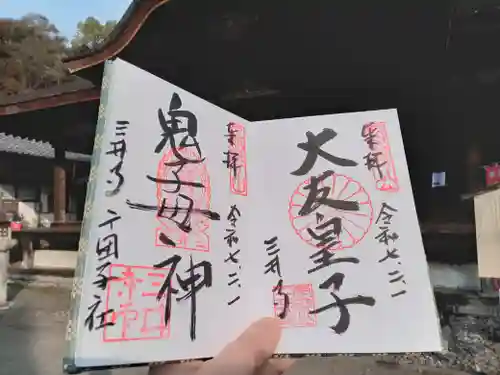 奉拝
令和七、二、一
大友皇子
三井寺
奉拝
令和七、二、一
鬼子母神
三井寺
千団子社